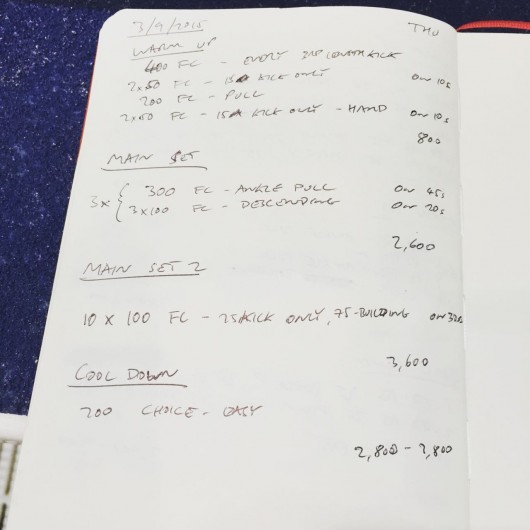 3/9/2015 THU
WARM UP
400 FC - EVERY 3RD LENGTH KICK
2x50 FC - 15m KICK ONLY on 10s
200 FC - PULL
2x50 FC - 15m KICK ONLY - HARD on 10s
800
MAIN SET
3x { 300 FC - ANKLE PULL on 45s
3x100 FC - DESCENDING on 20s
2,600
MAIN SET 2
10 x 100 FC - 25 KICK ONLY, 75-BUILDING on
3,600
COOL DOWN
200 CHOICE - EASY